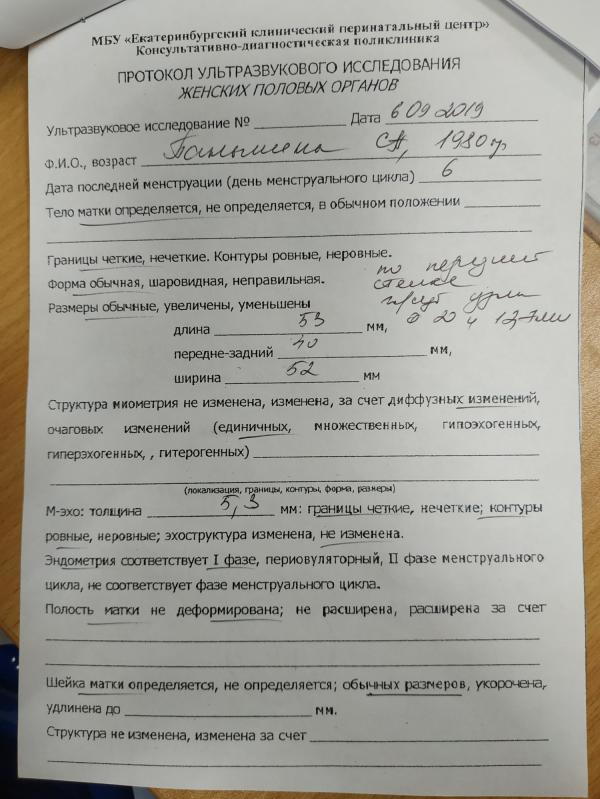 МБУ «Екатеринбургский клинический перинатальный центр»
Консультативно-диагностическая поликлиника
ПРОТОКОЛ УЛЬТРАЗВУКОВОГО ИССЛЕДОВАНИЯ
ЖЕНСКИХ ПОЛОВЫХ ОРГАНОВ
Ультразвуковое исследование № Дата 6 09 2019
Ф.И.О., возраст 1980 г
Дата последней менструации (день менструального цикла) 6
Тело матки определяется, не определяется, в обычном положении
Границы четкие, нечеткие. Контуры ровные, неровные.
по передней
Форма обычная, шаровидная, неправильная.
стенке
Размеры обычные, увеличены, уменьшены
узла
длина 53 мм,
20 и 12,7мм
передне-задний 40 мм,
ширина 52 мм
Структура миометрия не изменена, изменена, за счет диффузных изменений,
очаговых изменений (единичных, множественных, гипоэхогенных,
гиперэхогенных, , гитерогенных)
(локализация, границы, контуры, форма, размеры)
М-эхо: толщина 5,3 мм: границы четкие, нечеткие; контуры
ровные, неровные; эхоструктура изменена, не изменена.
Эндометрия соответствует I фазе, периовуляторный, II фазе менструального
цикла, не соответствует фазе менструального цикла.
Полость матки не деформирована; не расширена, расширена за счет
Шейка матки определяется, не определяется; обычных размеров, укорочена,
удлинена до мм.
Структура не изменена, изменена за счет